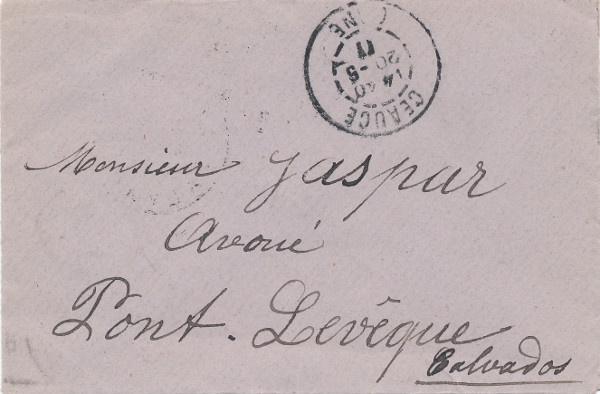 CEAUCE
14 40
20 -5
11
Monsieur Jaspar
Avoué
Pont-Levêque
Calvados